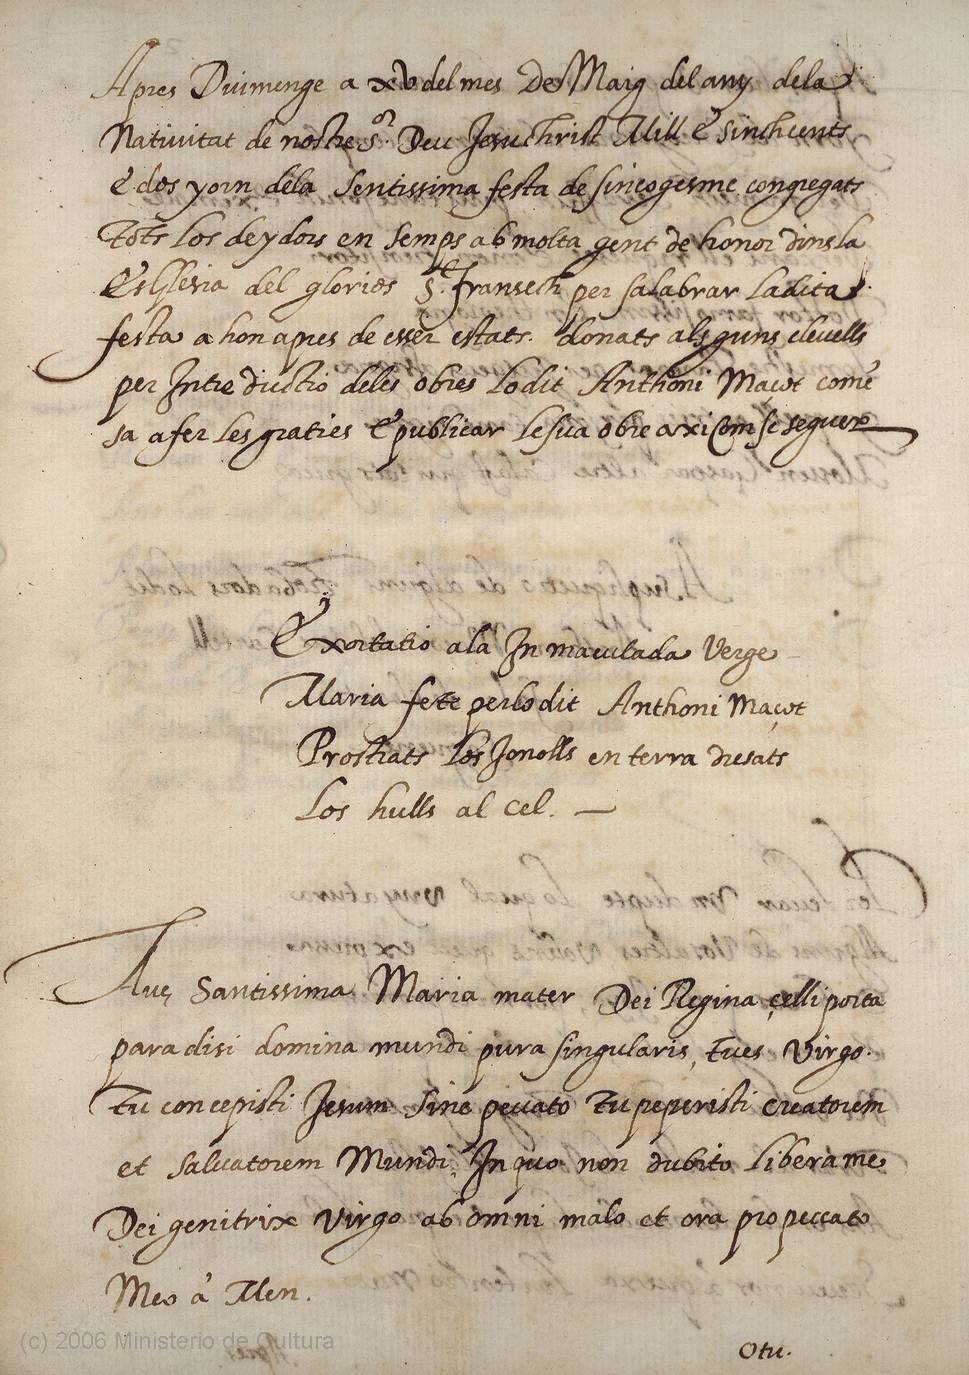 Apres Diumenge a xv del mes De Maig del any dela
Natiuitat de nostre Sor. Deu JesuChrist Mill E Sinchcents
E dos yorn dela Sentissima festa de sincogesme congregats
Tots los deydors en semps ab molta gent de honor dins la
Esglesia del glories St. fransech per salabrar la dita
festa a hon apres de esser estats. donats alsguns cleuells
per Intreductio deles obres lo dit Anthoni Maçot come
sa a fer les graties E publicar le sua obre axi com se seguex
Exortatio ala Inmaculada Verge
Maria fete per lo dit Anthoni Maçot
Prostrats los Jonolls en terra dresats
Los hulls al Cel. —
Aue Santissima Maria mater Dei Regina çelli porta
paradisi domina mundi pura singularis, tu es Virgo.
Tu concepisti Jesum Sine peccato Tu peperisti creatorem
et saluatorem Mundi, In quo non dubito libera me
Dei genitrix Virgo ab omni malo et ora pro peccato
Meo a Men.
Otu.
(c) 2006 Ministerio de Cultura